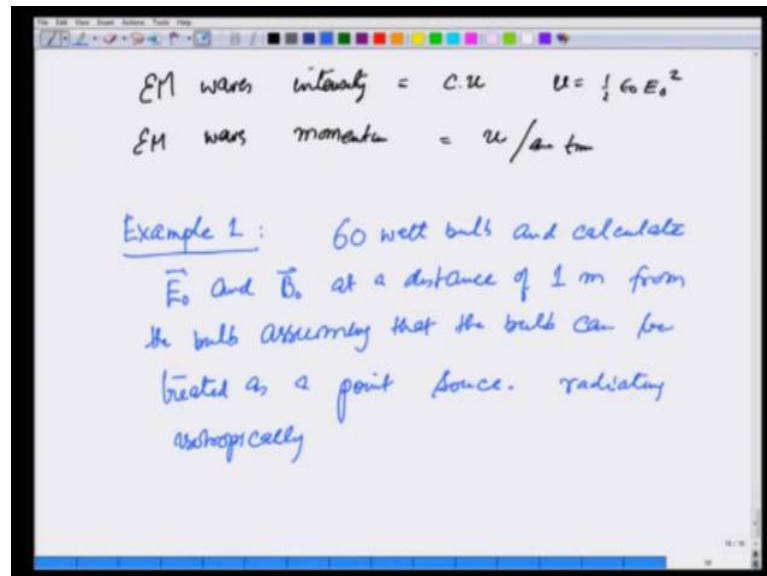 EM waves intensity = c.u u = ½ ε₀ E₀²
EM waves momentum = u /
Example 1 : 60 watt bulb and calculate
E⃗₀ and B⃗₀ at a distance of 1 m from
the bulb assuming that the bulb can be
treated as a point source. radiating
isotropically